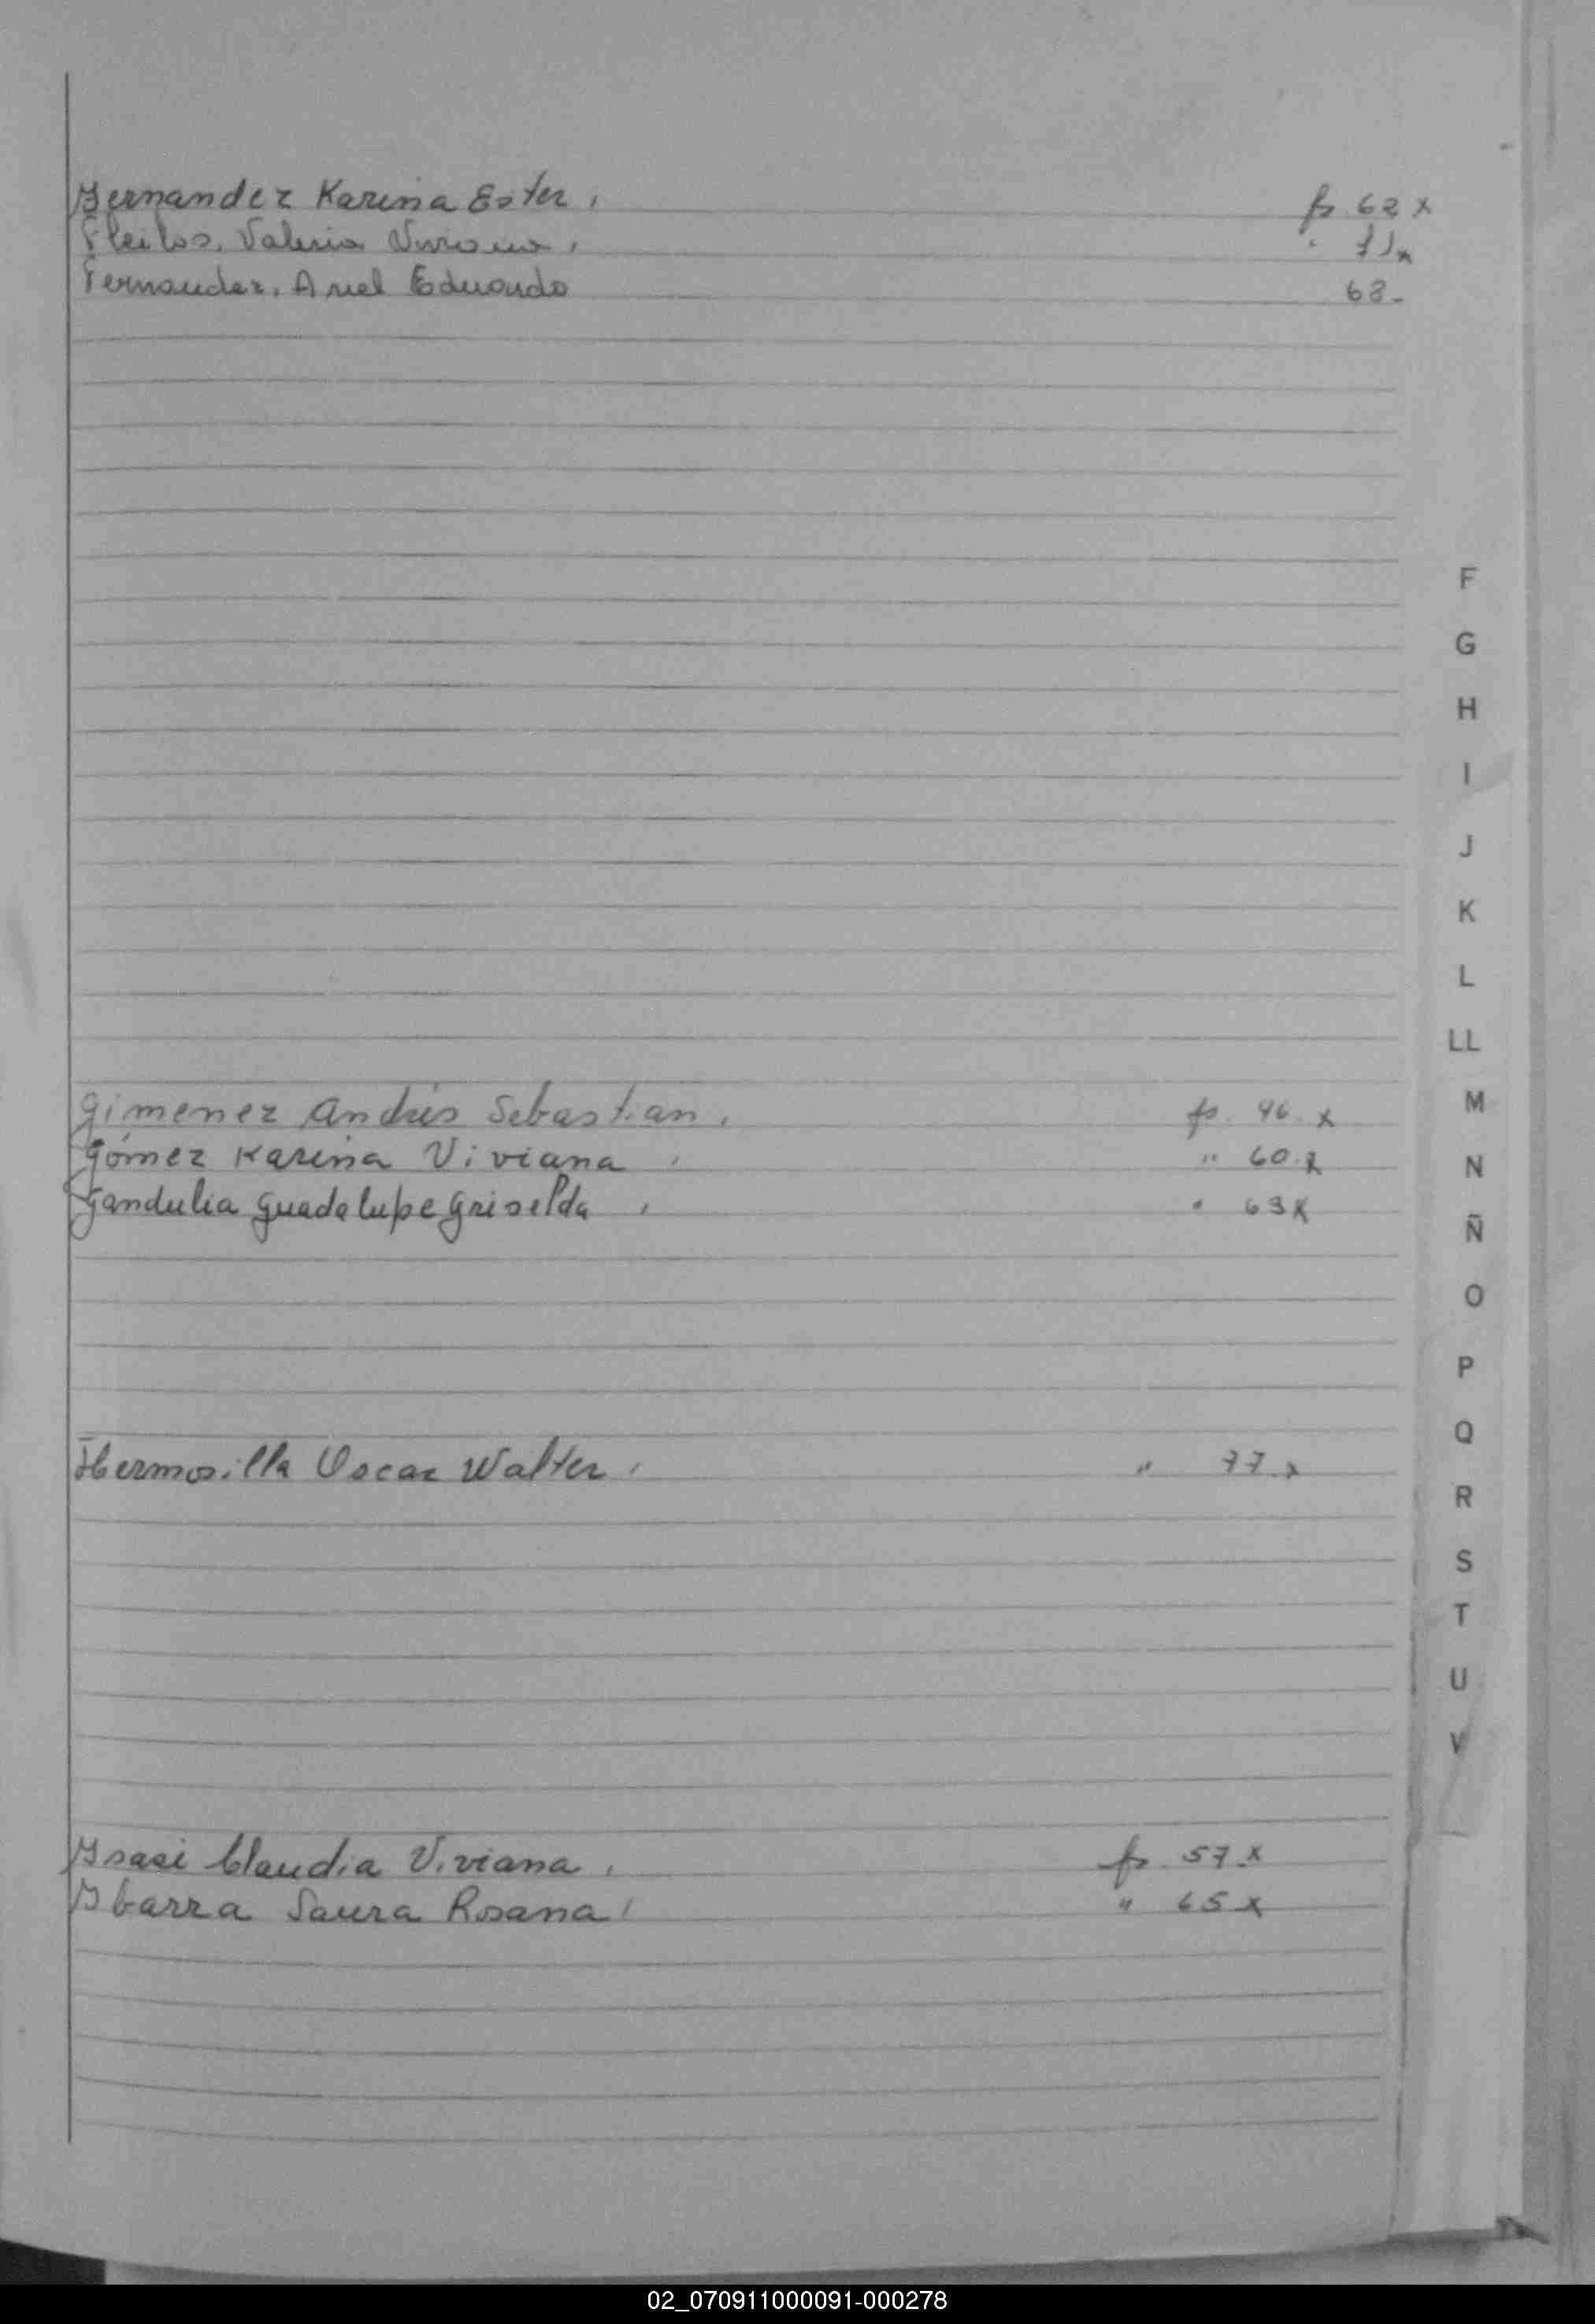 Fernandez Karina Ester, fs 62 x
Fleitas, Valeria Viviana, " 71 x
Fernandez, Ariel Eduardo 68-
F
G
H
I
J
K
L
LL
Gimenez Andrés Sebastian, fs. 46 x
Gómez Karina Viviana, " 60 x
Gandulia Guadalupe Griselda, " 63 x
M
N
Ñ
O
P
Q
Hermosilla Oscar Walter, " 77 x
R
S
T
U
V
Isasi Claudia Viviana, fs 57 x
Ibarra Laura Rosana, " 65 x
02_070911000091-000278